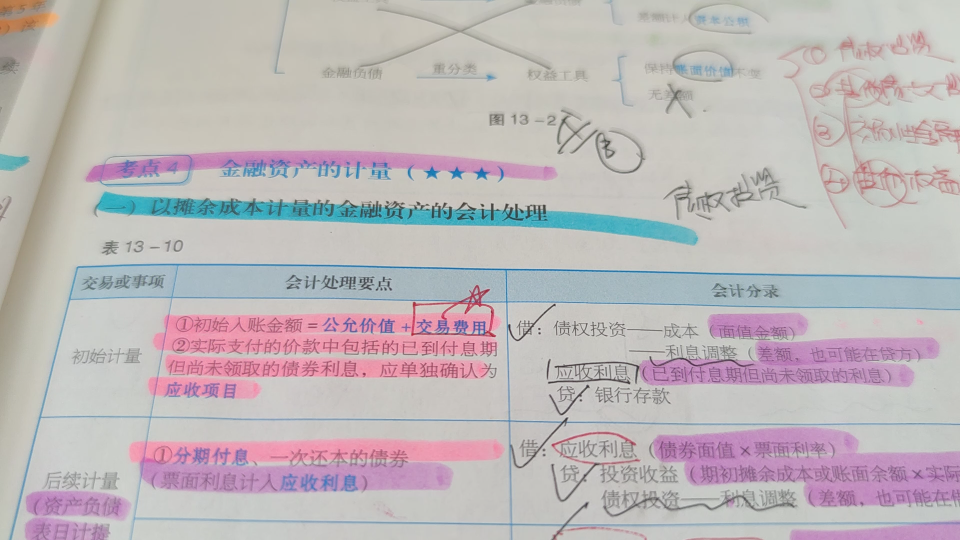 差额计入资本公积
金融负债 重分类 权益工具
保持账面价值不变
无差额
图 13-2
① 债权投资
考点 4 金融资产的计量（★★★）
债权投资
（一）以摊余成本计量的金融资产的会计处理
表 13-10
交易或事项 会计处理要点 会计分录
初始计量
①初始入账金额＝公允价值+交易费用
②实际支付的价款中包括的已到付息期
但尚未领取的债券利息，应单独确认为
应收项目
借：债权投资——成本（面值金额）
——利息调整（差额，也可能在贷方）
应收利息（已到付息期但尚未领取的利息）
贷：银行存款
后续计量
（资产负债
表日计提
①分期付息、一次还本的债券
（票面利息计入应收利息）
借：应收利息（债券面值×票面利率）
贷：投资收益（期初摊余成本或账面余额×实际
债权投资——利息调整（差额，也可能在借